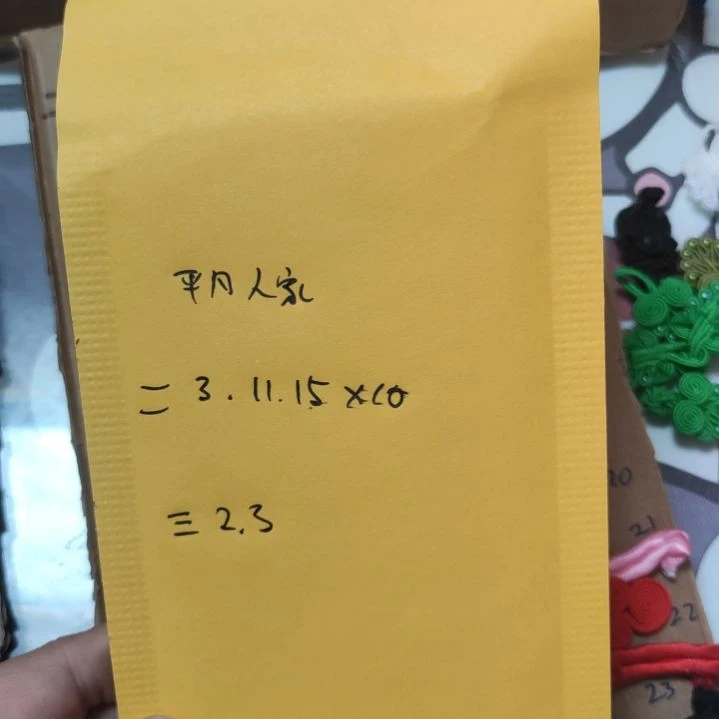 平凡人家
二 3.11.15×10
三 2.3
20
21
22
23